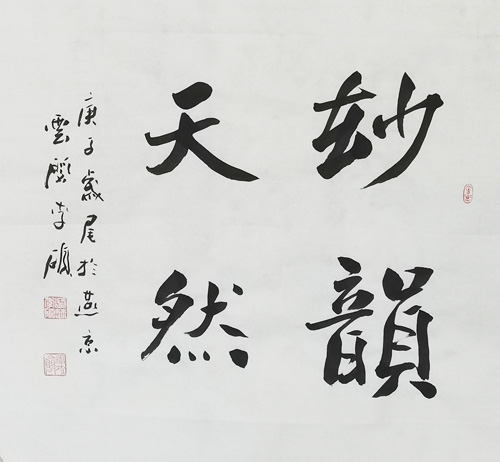 玅韻
天然
庚子歲尾於燕京
雲李碩